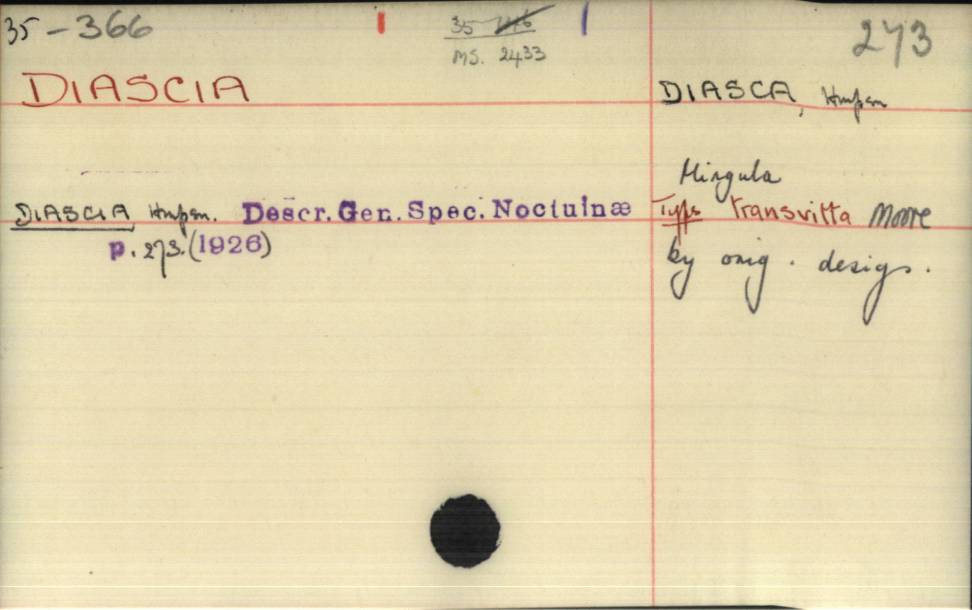 35-366
35
MS. 2433
273
DIASCIA
DIASCIA Hmpsn. Descr. Gen. Spec. Noctuinæ
p. 273. (1926)
DIASCA, Hmpsn
Hingula
Type transvitta Moore
by orig. desigs.